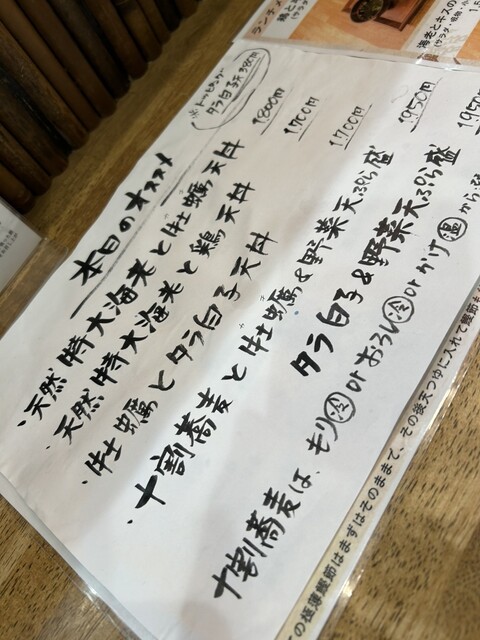 本日のオススメ
※トッピング
タラ白子天380円
・天然特大海老と牡蠣天丼 1800円
・天然特大海老と鶏天丼 1700円
・牡蠣とタラ白子天丼 1700円
・十割蕎麦と牡蠣&野菜天ぷら盛 1950円
タラ白子&野菜天ぷら盛 1950
十割蕎麦は、モリ冷orおろし冷orかけ温から
の極薄鰹節はまずはそのままで、その後天つゆに入れて
ランチ
海老とキス